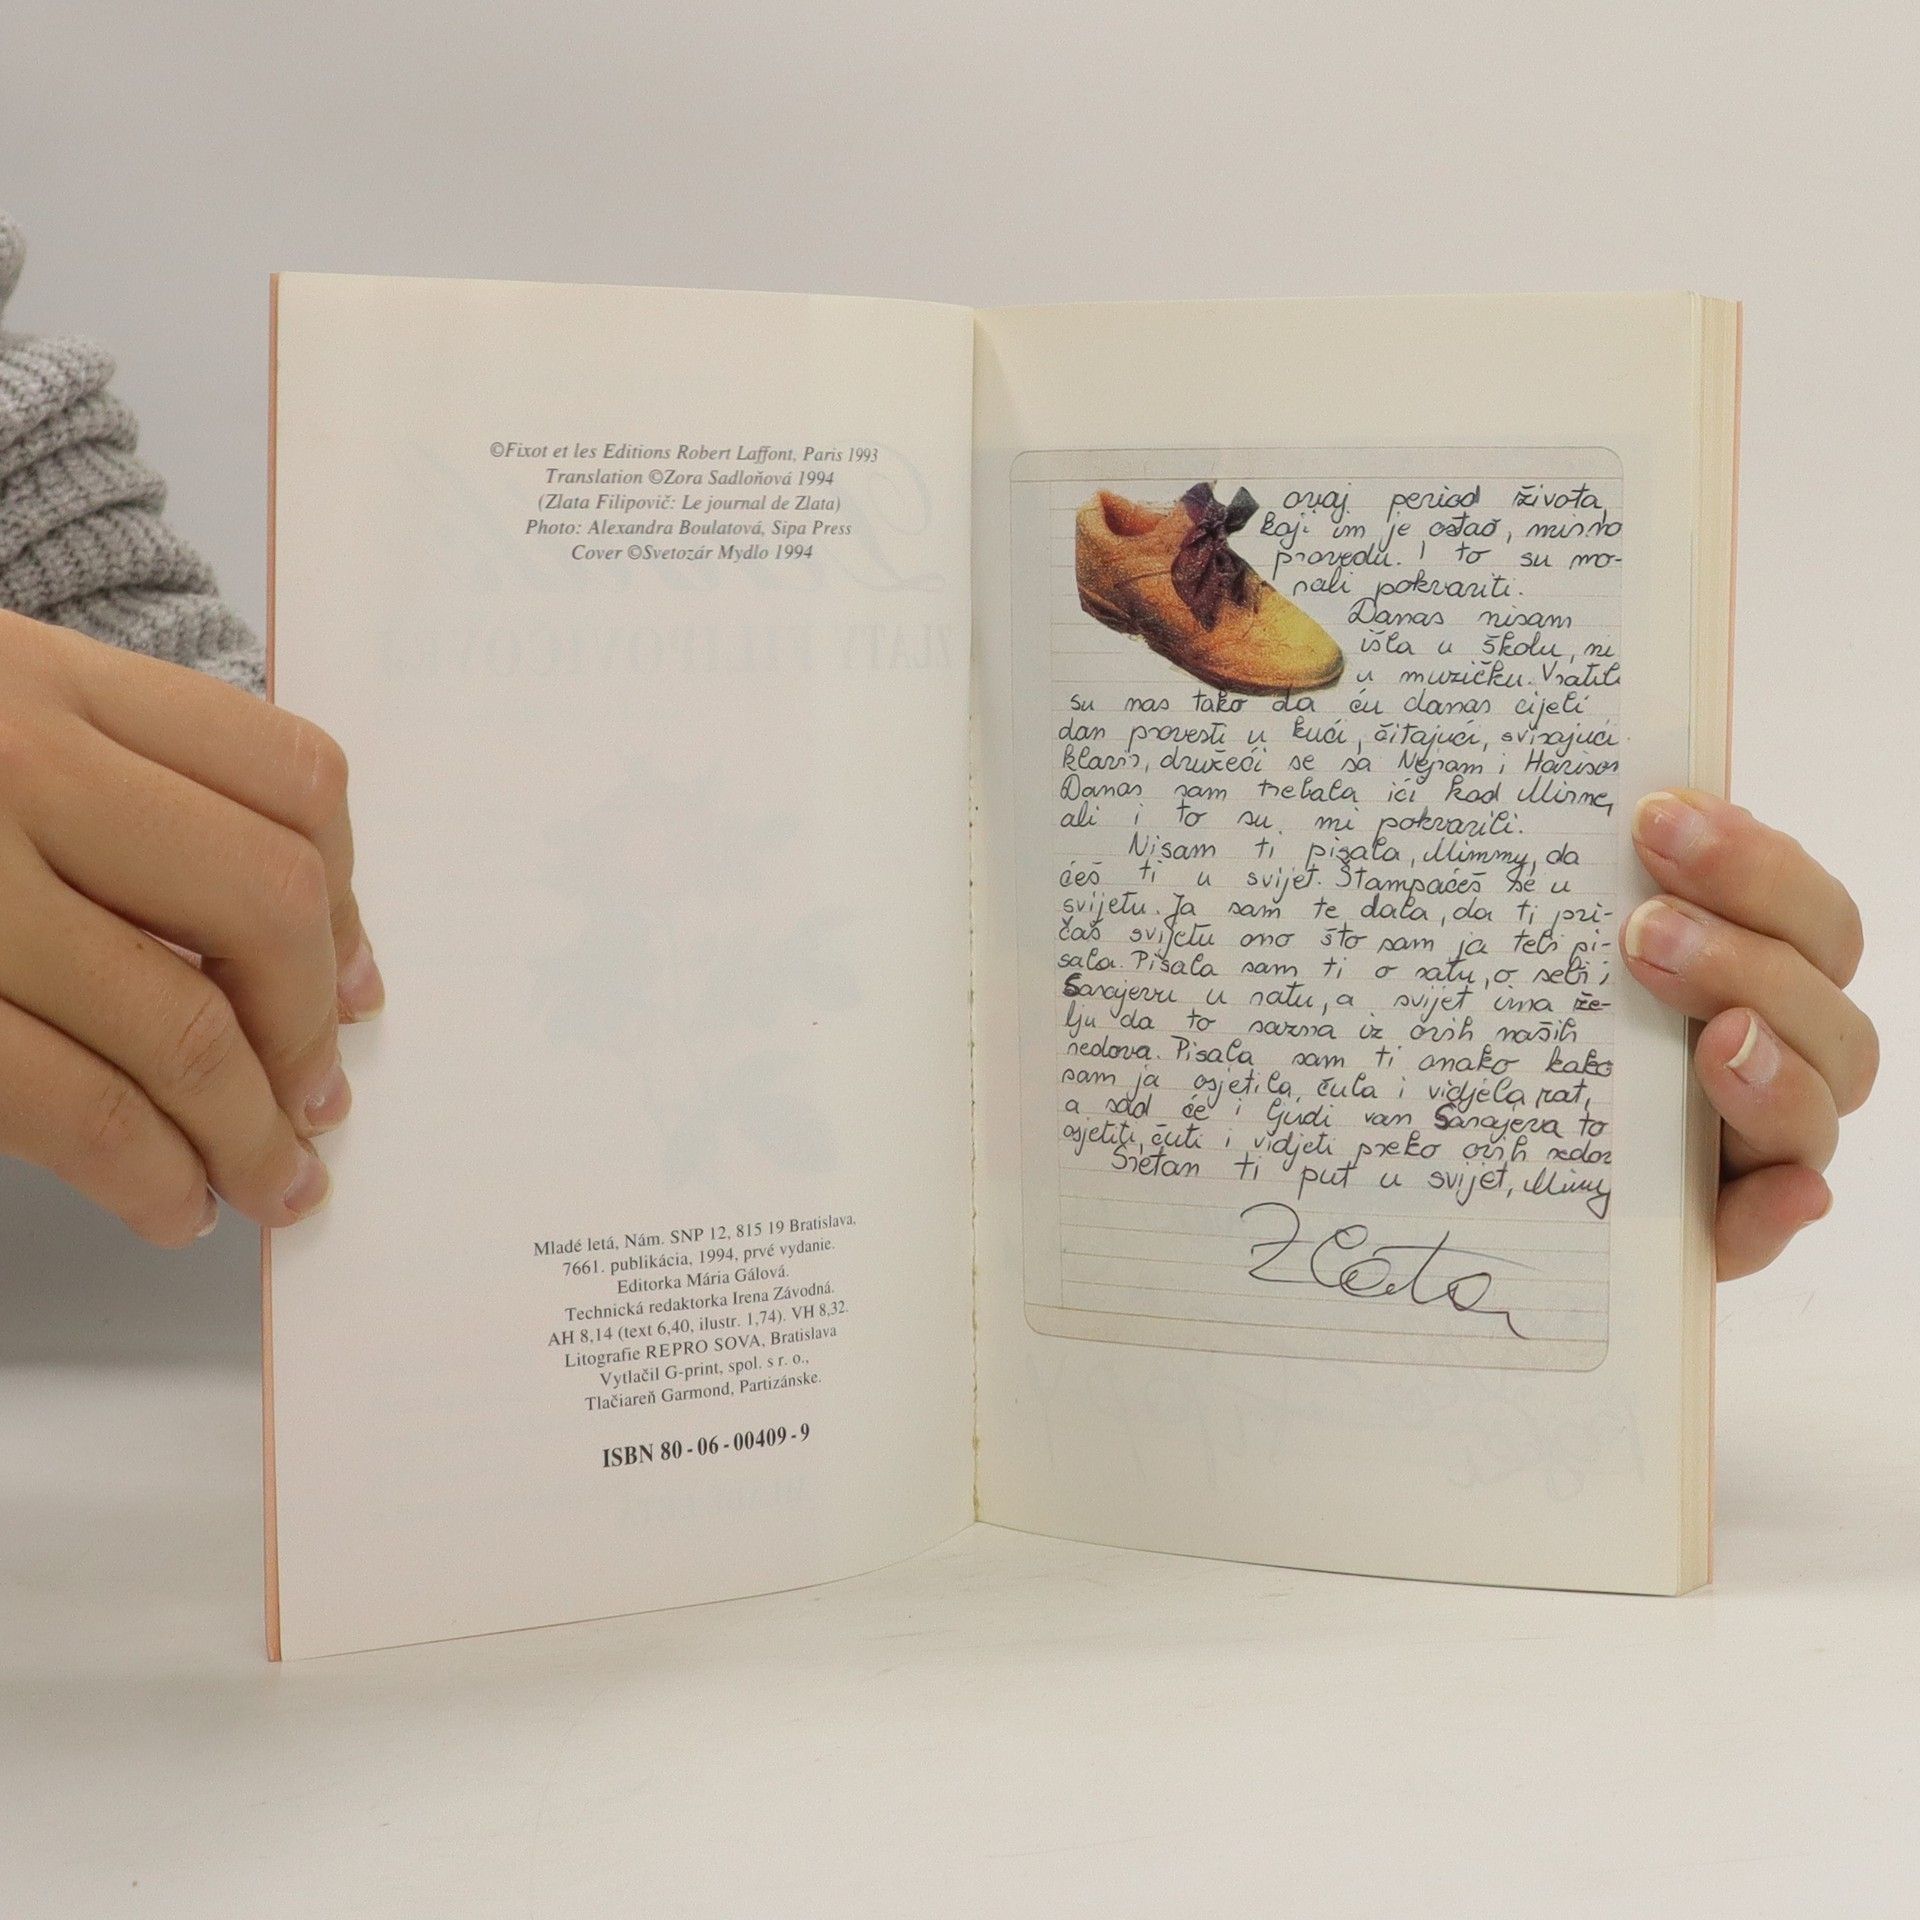 ©Fixot et les Editions Robert Laffont, Paris 1993
Translation ©Zora Sadloňová 1994
(Zlata Filipovič: Le journal de Zlata)
Photo: Alexandra Boulatová, Sipa Press
Cover ©Svetozár Mydlo 1994
Mladé letá, Nám. SNP 12, 815 19 Bratislava,
7661. publikácia, 1994, prvé vydanie.
Editorka Mária Gálová.
Technická redaktorka Irena Závodná.
AH 8,14 (text 6,40, ilustr. 1,74). VH 8,32.
Litografie REPRO SOVA, Bratislava
Vytlačil G-print, spol. s r. o.,
Tlačiareň Garmond, Partizánske.
ISBN 80-06-00409-9
ovaj period života,
koji im je ostao, mirno
provedu. I to su mo-
rali pokvariti.
Danas nisam
išla u školu, ni
u muzičku. Vratili
su nas tako da ću danas cijeli
dan provesti u kući, čitajući, svirajući
klavir, družeći se sa Nejram i Harisom
Danas sam trebala ići kod Mirne,
ali i to su mi pokvarili.
Nisam ti pisala, Mimmy, da
ćeš ti u svijet. Štampaćeš se u
svijetu. Ja sam te dala, da ti pri-
čaš svijetu ono što sam ja tebi pi-
sala. Pisala sam ti o ratu, o sebi i
Sarajevu u ratu, a svijet ima že-
lju da to sazna iz ovih naših
redova. Pisala sam ti onako kako
sam ja osjetila, čula i vidjela rat,
a sad će i ljudi van Sarajeva to
osjetiti, čuti i vidjeti preko ovih redov
Sretan ti put u svijet, Mimmy
Zlata